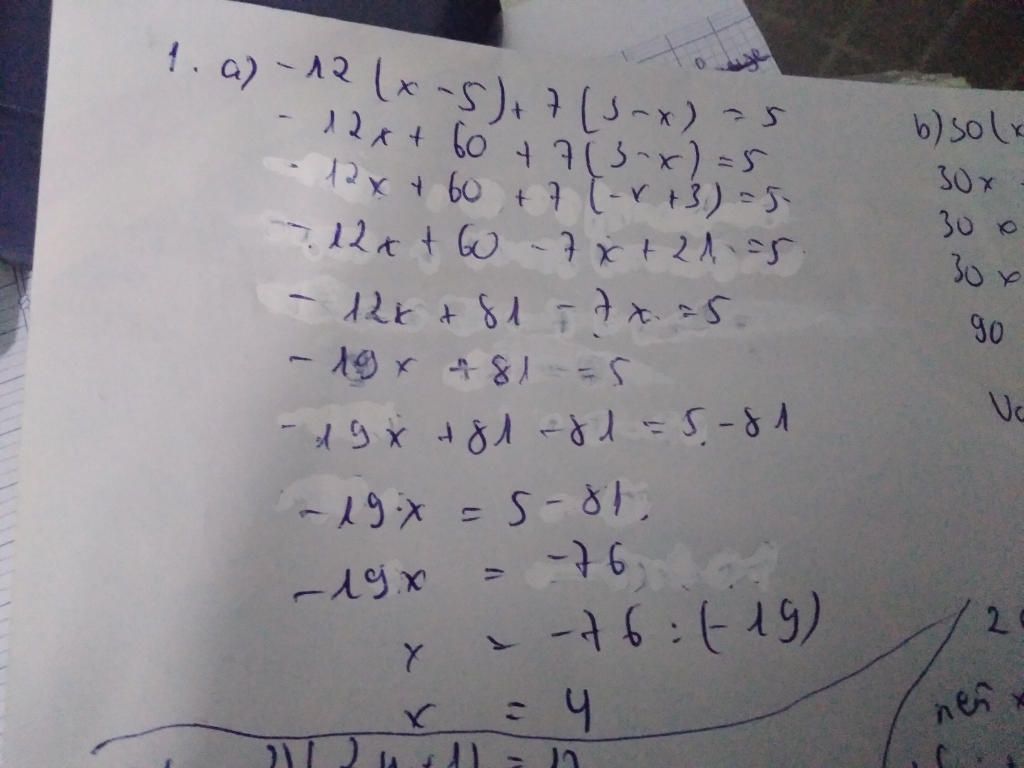 1. a) -12 (x - 5) + 7 (3 - x) = 5
- 12x + 60 + 7 (3 - x) = 5
- 12x + 60 + 7 (-x + 3) = 5
- 12x + 60 - 7x + 21 = 5
- 12x + 81 - 7x = 5
- 19x + 81 = 5
- 19x + 81 - 81 = 5 - 81
- 19x = 5 - 81
- 19x = -76
x = -76 : (-19)
x = 4
b) 30(x
30x
30x
30x
90